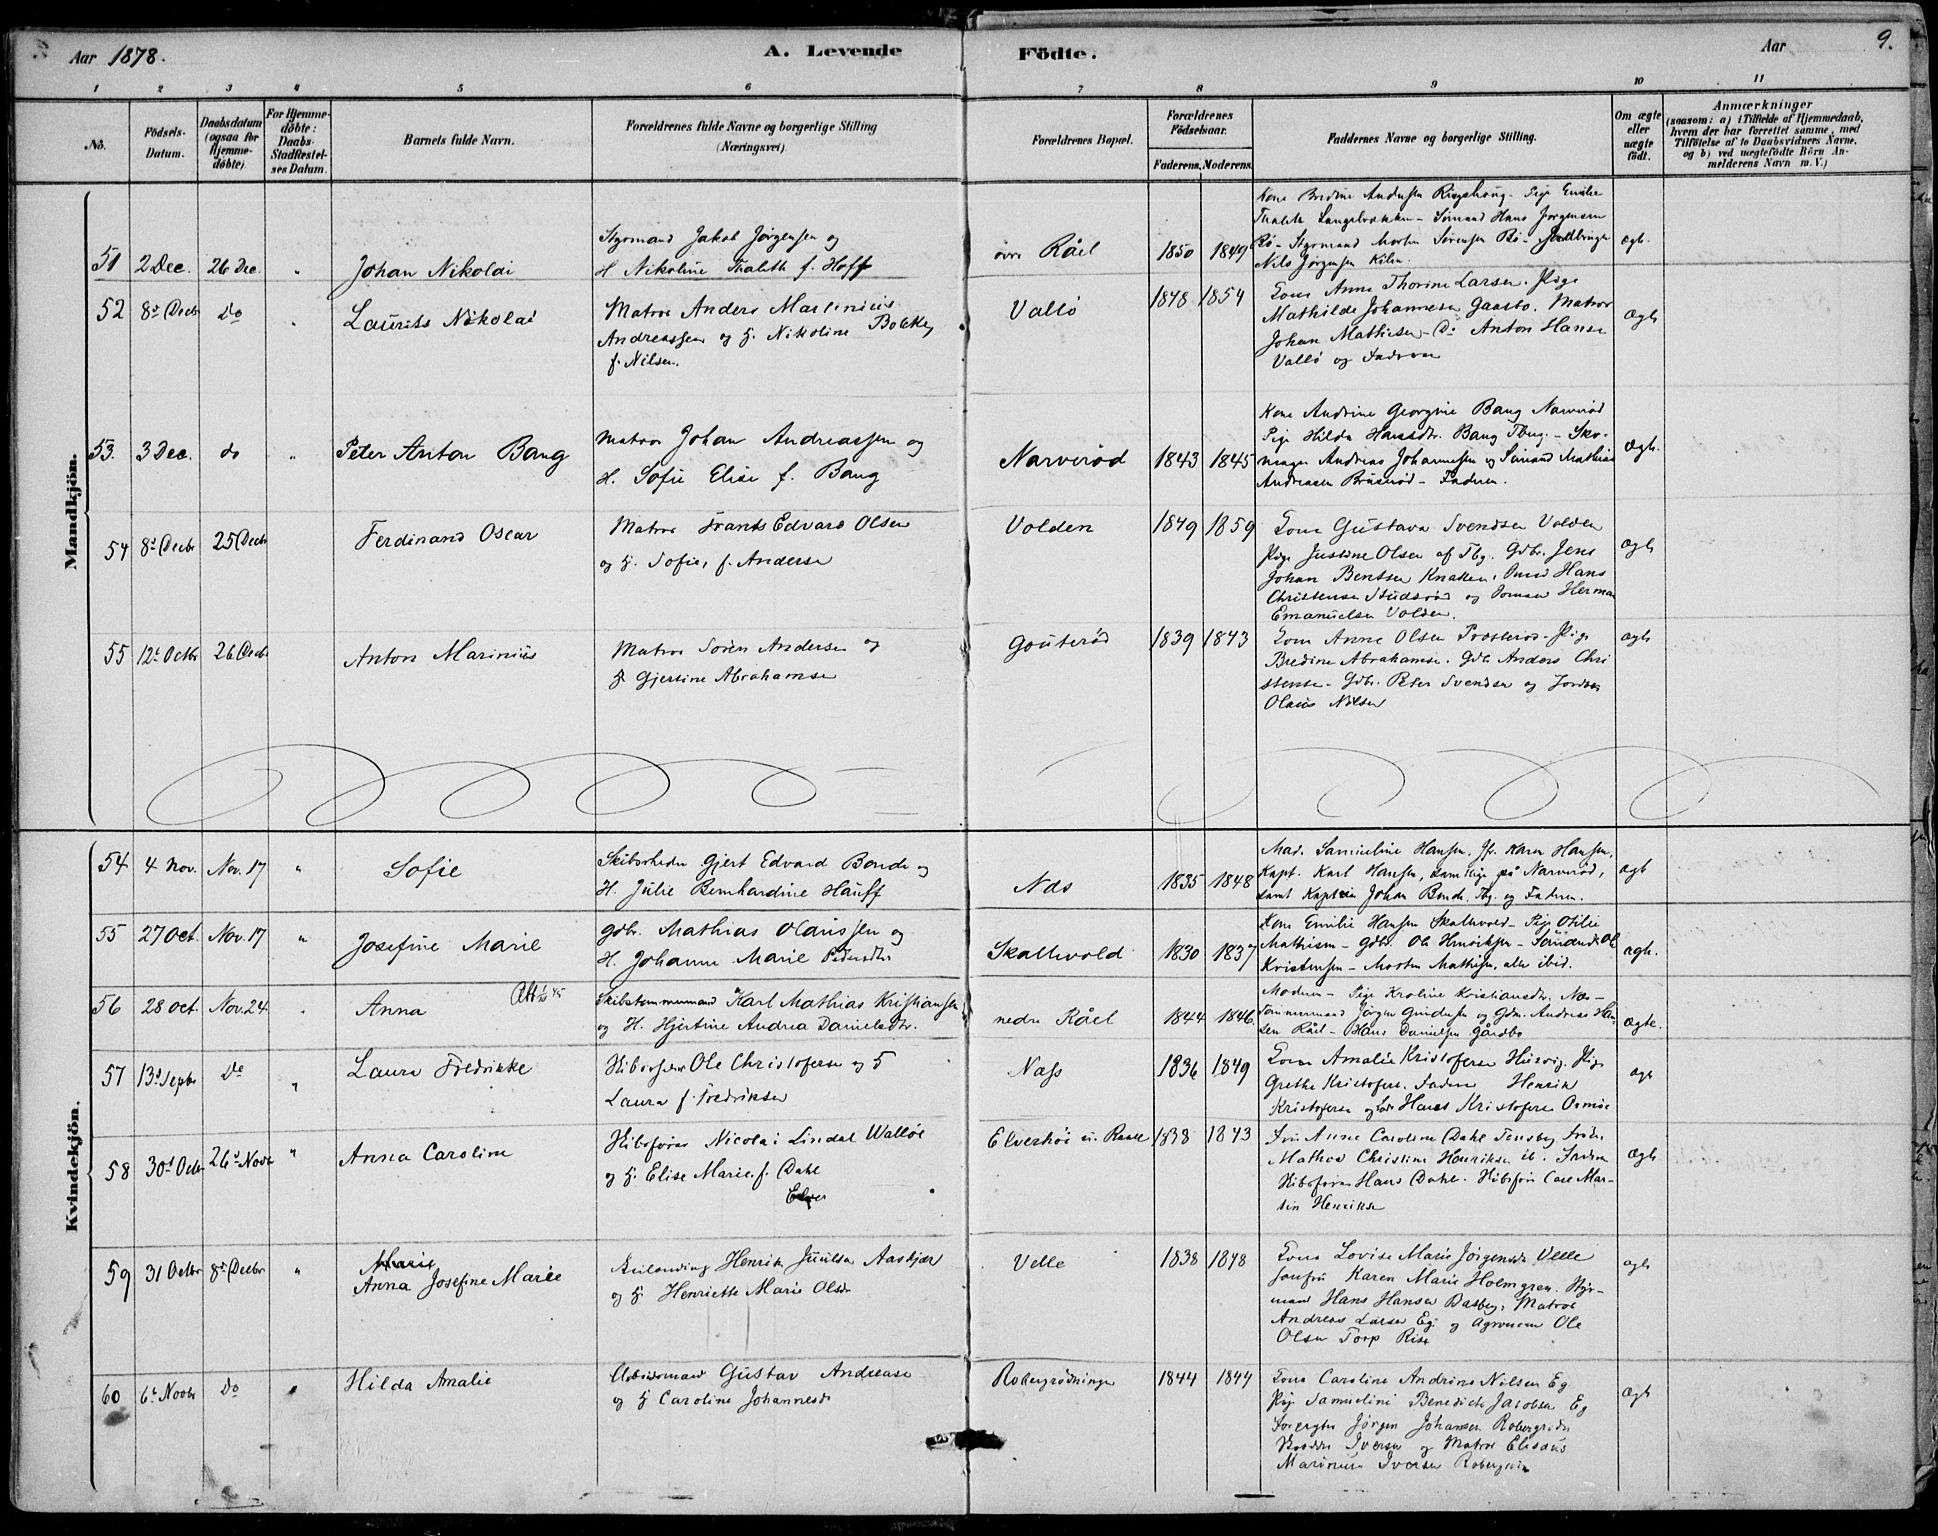 Aar 1878.
A. Levende
Födte.
Aar
9.
1 2 3 4 5 6 7 8 9 10 11
No.
Födsels-Datum.
Daabsdatum (ogsaa for Hjemme-døbte).
For Hjemme-døbte: Daabs-Stadfæstel-ses Datum.
Barnets fulde Navn.
Forældrenes fulde Navne og borgerlige Stilling (Næringsvei).
Forældrenes Bopæl.
Forældrenes Fødselsaar.
Faderens. Moderens.
Faddernes Navne og borgerlige Stilling.
Om ægte eller uægte født.
Anmærkninger
(saasom: a) i Tilfælde af Hjemmedaab, hvem der har forrettet samme, med Tilføielse af to Daabsvidners Navne, og b) ved uægtefödte Börn An-melderens Navn m. V.)
Mandkjön.
51 2 Dec. 26 Dec. " Johan Nikolai
Styrmand Jakob Jørgensen og
H. Nikoline Thalette f. Hoff
øvre Råel 1850 1849
Kone Bredine Andersen Ringshoug. Pige Emilie
Thalette Langebrækken - Sømand Hans Jørgensen
Bø - Styrmand Morten Sørensen Bø -
Nils Jørgensen Kilen.
ægte.
52 8d Decbr Do " Laurits Nikolai
Matros Anders Martinius
Andreassen og H. Nikoline Bolette
f. Nilsen.
Vallö 1848 1854
Kone Anne Thorine Larsen. Pige
Mathilde Johannesen Gaasø. Matros
Johan Mathisen - Do Anton Hansen
Vallö og Faderen
Ægte
53. 3 Dec. do " Peter Anton Bang
Matros Johan Andreassen og
H. Sofie Elise f. Bang
Narverød 1843 1845
Kone Andrine Georgine Bang Narverød
Pige Hilda Hansdtr. Bang Tbrg. - Sko-
mager Andreas Johannesen og Sømand Mathias
Andreasen Bruserød - Faderen.
Ægte.
54 8d Decbr 25 Decbr Ferdinand Oscar
Matros Frants Edvard Olsen
og H. Sofie, f. Andersen
Volden 1849 1859
Kone Gustava Svendsen Volden
Pige Justine Olsen af Tbg. Gdbr. Jens
Johan Bentsen Knatten, Hans
Christensen og Herman
Emanuelsen Volden.
Ægte
55 12t Octbr 26 Decbr Anton Marinius
Matros Sören Andersen og
H. Gjertine Abrahamsen
Gouterød 1839 1843
Kone Anne Olsen Præsterød - Pige
Bredine Abrahamsen. Gdb. Anders Chri
stensen - Gdbr. Peter Svendsen og
Olaus Nilsen
Ægte
Kvindekjön.
54 4 Nov. Nov. 17 " Sofie
Skibsreder Gjert Edvard Bonde og
H. Julie Bernhardine Hauff
Næs 1835 1848
Mad. Samueline Hansen, Jf. Karen Hansen,
Kapt. Karl Hansen, samtlige på Narverød,
samt Kaptein Johan Bonde, Tbg. og Faderen.
ægte
55 27 Oct. Nov. 17 " Josefine Marie
Gdbr. Mathias Olaussen og
H. Johanne Marie Pedersdtr.
Skallevold 1830 1837
Kone Emilie Hansen Skallevold - Pige Otilie
Mathisen - Gdbr. Ole Henriksen - Sømænd: Ole
Kristensen - Morten Mathisen, alle ibid.
ægte.
56 28 Oct. Nov. 24. Anna
Skibstømmermand Karl Mathias Kristiansen
og H. Hjertine Andrea Danielsdtr.
nedre Råel 1844 1846.
Moderen - Pige Karoline Kristiansdtr. Næs -
Tømmermand Jørgen Gundersen og Gdm. Andreas Han-
sen Råel - Hans Danielsen Gårdbo
ægte.
57 13d Septbr Do " Laura Fredrikke
Skibsfører Ole Christofersen og H
Laura f. Fredriksen
Næss 1836 1849
Kone Amalie Kristofersen Husvig. Pige
Grethe Kristofers. Faderen Henrik
Kristofersen og Hans Kristofersen
ægte
58 30d Octbr 26d Novbr " Anna Caroline
Skibsfører Nicolai Lindal Walløe
og H. Elise Marie f. Dahl
Elverhöi u. Raael 1838 1843
Fru Anne Caroline Dahl Tønsberg.
Mathea Christine Henriksen ib. Faderen
Skibsfører Hans Dahl. Skibsfører Carl Mar-
tin Henriksen
Ægte
59 31 Octbr 8d Decbr " Anna Josefine Marie
Henrik Juulsen Aaskjær
og H. Henriette Marie Olsdr
Velle 1838 1848
Kone Lovise Marie Jörgensdr Velle
Jomfru Karen Marie Holmgren. Styr-
mand Hans Hansen Basberg, Matros
Andreas Larsen Eg og Agronom Ole
Olsen Torp Rise
ægte
60 6t Novbr Do " Hilda Amalie
Arbeidsmand Gustav Andreasen
og H Caroline Johannesdr
Robergrødningen 1844 1844
Kone Caroline Andrine Nilsen Eg
Pige Samueline Benedicte Jacobsen Eg
Jörgen Johansen
Iversen og Matros Elisæus
Marinius Iversen
Ægte